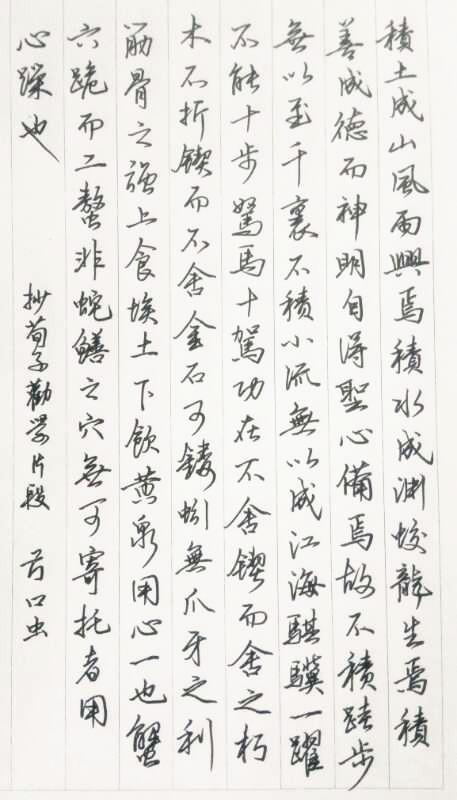 積土成山風雨興焉積水成淵蛟龍生焉積
善成德而神明自得聖心備焉故不積蹞步
無以至千裏不積小流無以成江海騏驥一躍
不能十步駑馬十駕功在不舍鍥而舍之朽
木不折鍥而不舍金石可鏤蚓無爪牙之利
筋骨之強上食埃土下飲黄泉用心一也蟹
六跪而二螯非蛇鱔之穴無可寄托者用
心躁也
抄荀子勸学片段